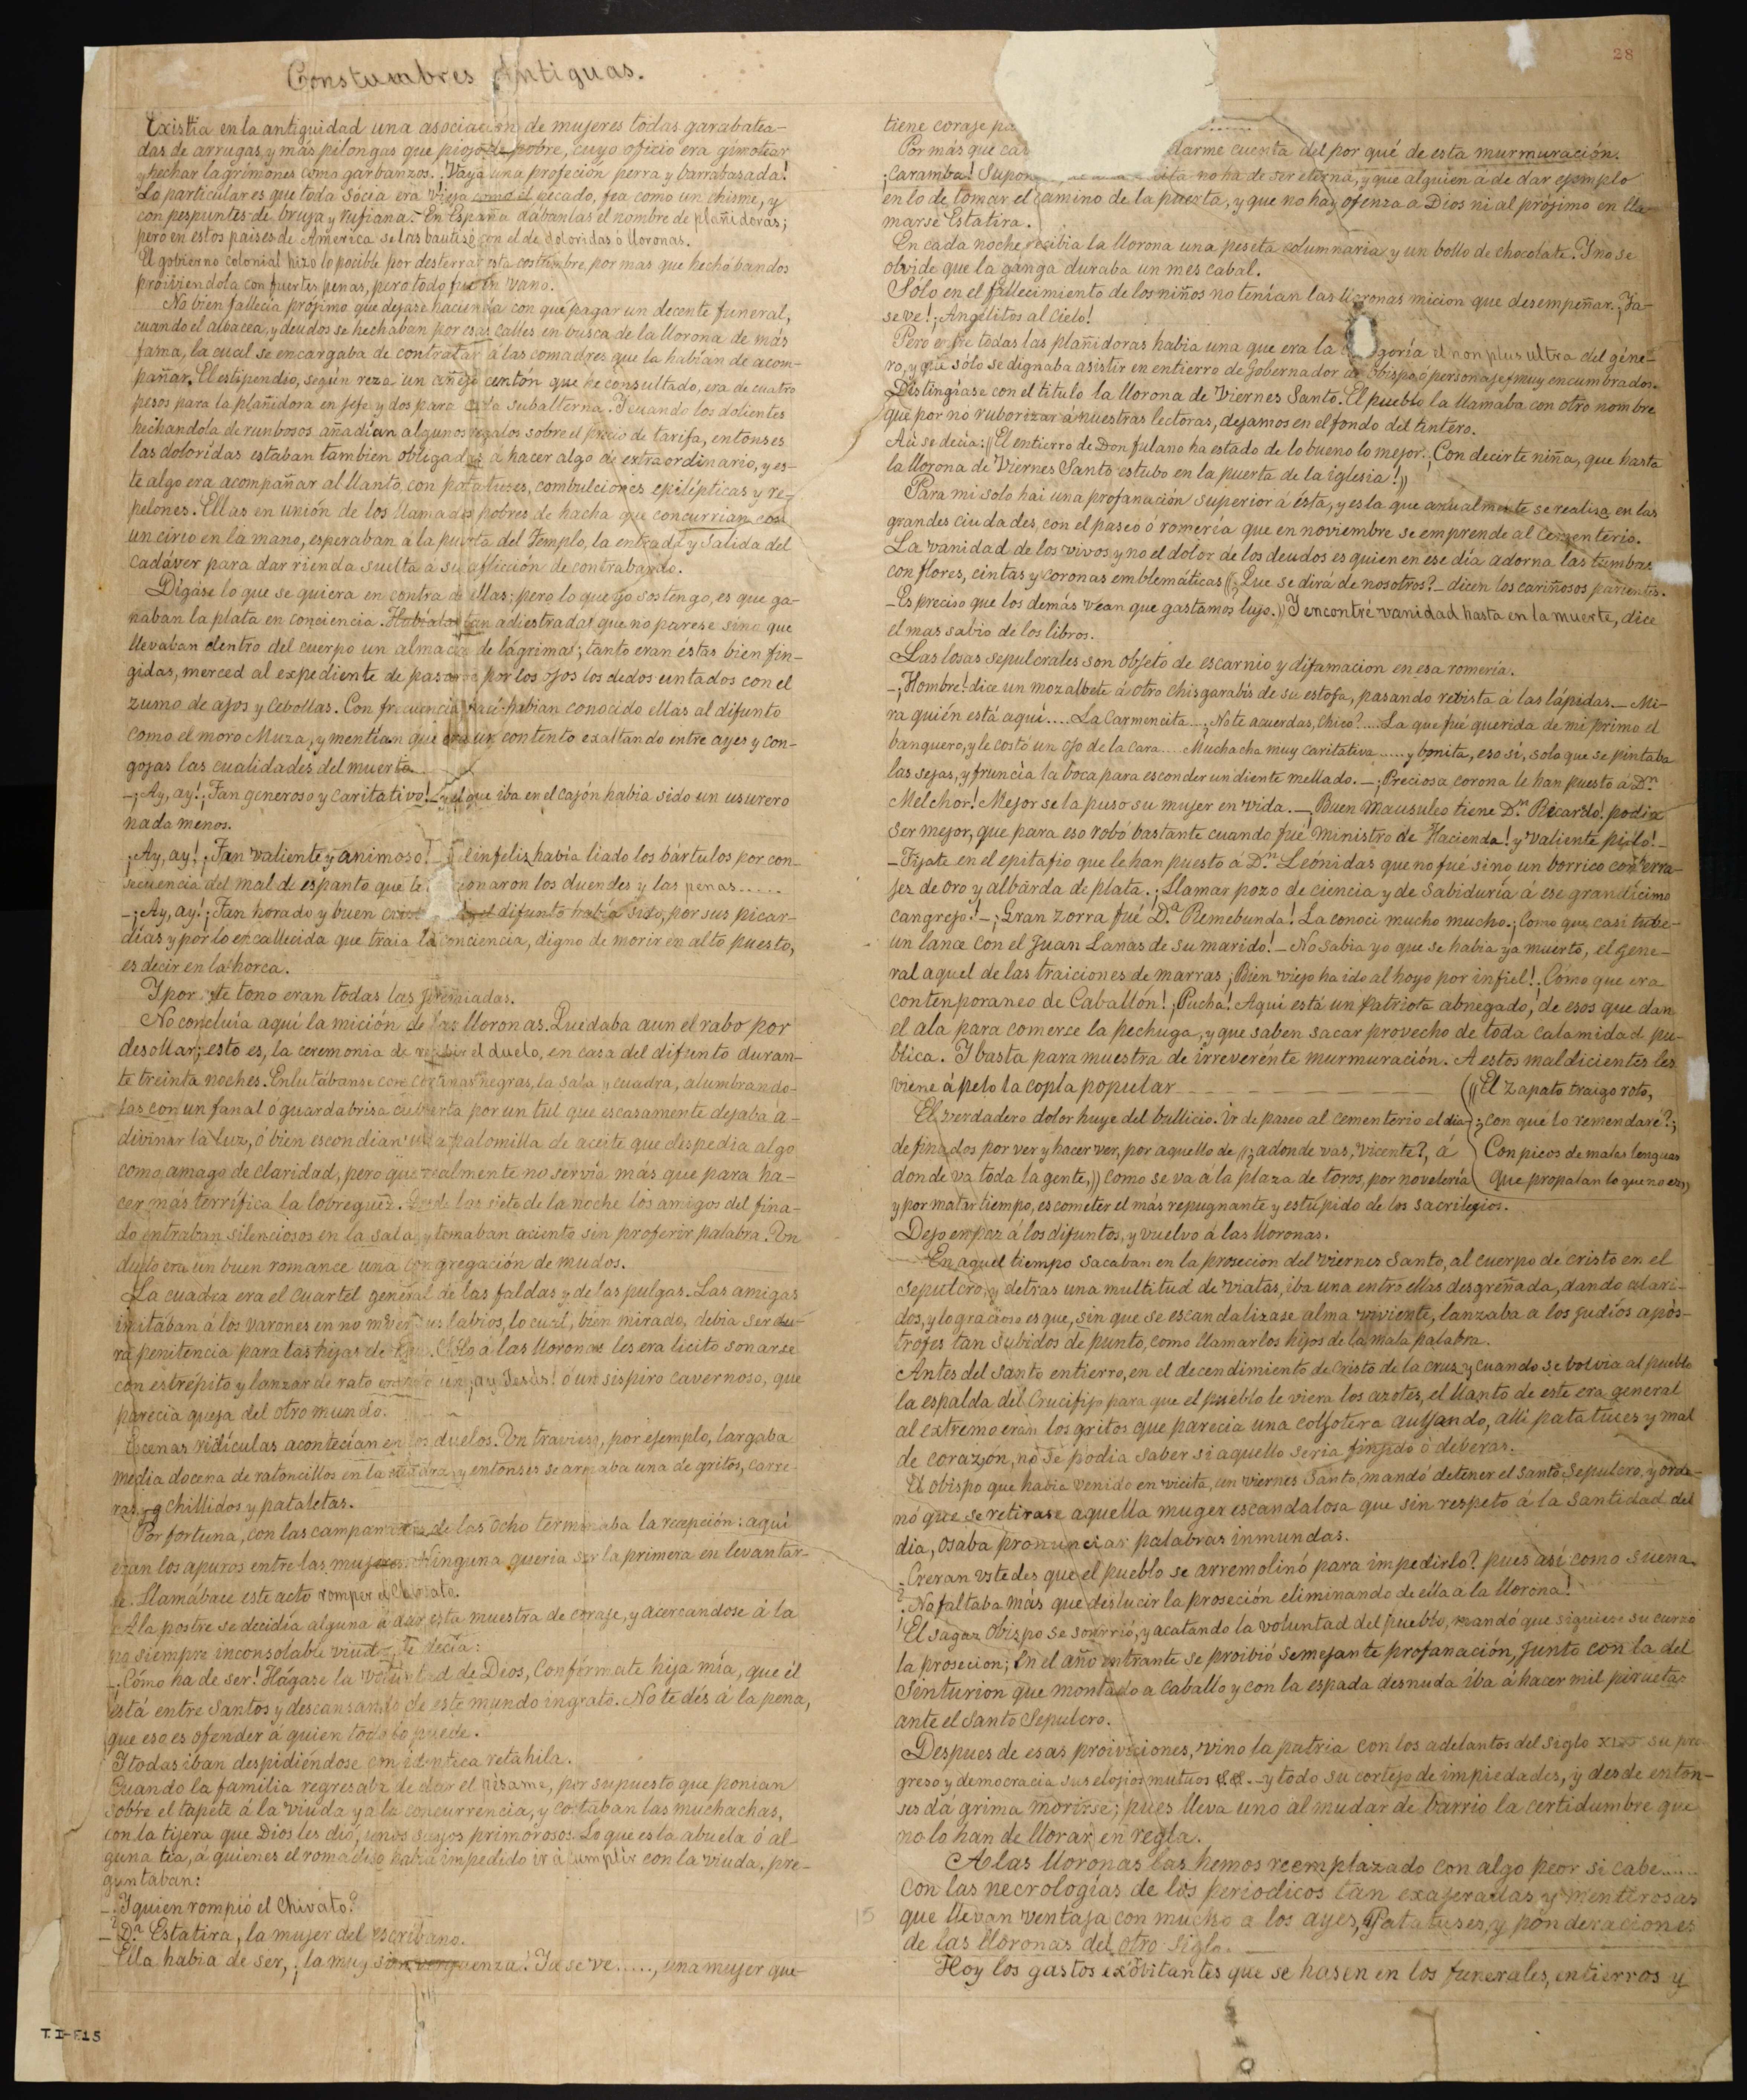 28
Constumbres Antiguas.
Existia en la antiguidad una asociación de mujeres todas garabatea-
das de arrugas y más pilongas que piojo de pobre, cuyo oficio era gimotear
y hechar lagrimones como garbanzos. ¡Vaya una profeción perra y barrabasada!
Lo particular es que toda sócia era vieja como el pecado, fea como un chisme, y
con pespuntes de bruja y rufiana.- En España dábanlas el nombre de plañidoras;
pero en estos paises de América se las bautisó con el de doloridas ó lloronas.
El gobierno colonial hizo lo pocible por desterrar esta costumbre, por mas que hechó bandos
proiviendola con fuertes penas, pero todo fué en vano.
No bien fallecía prójimo que dejase hacienda con qué pagar un decente funeral,
cuando el albacea y deudos se hechaban por esas calles en busca de la llorona de más
fama, la cual se encargaba de contratar á las comadres que la habían de acom-
pañar. El estipendio, según reza un añejo centón que he consultado, era de cuatro
pesos para la plañidora en jefe y dos para cada subalterna. Y cuando los dolientes
hechandola de runbosos añadían algunos regalos sobre el precio de tarifa, entonses
las doloridas estaban tambien obligadas á hacer algo de extraordinario, y es-
te algo era acompañar al llanto con patatuses, combulciones epilépticas y re-
pelones. Ellas en unión de los llamados pobres de hacha que concurrian con
un círio en la mano, esperaban á la puerta del Templo, la entrada y salida del
cadáver para dar rienda suelta á su aflicción de contrabando.
Dígase lo que se quiera en contra de ellas; pero lo que yo sostengo, es que ga-
naban la plata en conciencia. Habíalas tan adiestradas que no parese sino que
llevaban dentro del cuerpo un almacen de lágrimas; tanto eran éstas bien fin-
gidas, merced al expediente de pasarse por los ojos los dedos untados con el
zumo de ajos y cebollas. Con frecuencia, así habian conocido ellas al difunto
como el moro Muza, y mentían que era un contento exaltando entre ayes y con-
gojas las cualidades del muerto.
-¡Ay, ay! ¡Tan generoso y caritativo!- y el que iba en el cajón habia sido un usurero
nada menos.
¡Ay, ay! ¡Tan valiente y animoso! el infeliz había liado los bártulos por con-
secuencia del mal de espanto que le ocasionaron los duendes y las penas......
-¡Ay, ay! ¡Tan horado y buen el difunto había sido, por sus picar-
días y por lo encallecida que traia la conciencia, digno de morir en alto puesto,
es decir en la horca.
Y por este tono eran todas las jeremiadas.
No concluía aquí la mición de las lloronas. Quedaba aun el rabo por
desollar; esto es, la ceremonia de recibir el duelo, en casa del difunto duran-
te treinta noches. Enlutábanse con cortinas negras, la sala y cuadra, alumbrando-
las con un fanal ó guardabrisa cubierta por un tul que escasamente dejaba á-
divinar la luz, ó bien escondian una palomilla de aceite que despedia algo
como amago de claridad, pero que realmente no servía más que para ha-
cer más terrífica la lobreguez. Desde las siete de la noche los amigos del fina-
do entraban silenciosos en la sala y tomaban aciento sin proferir palabra. Un
duelo era un buen romance una congregación de mudos.
La cuadra era el cuartel general de las faldas y de las pulgas. Las amigas
imitaban á los varones en no mover sus labios, lo cual, bien mirado, debía ser du-
ra penitencia para las hijas de Eva. Sólo á las lloronas les era lícito sonarse
con estrépito y lanzar de rato en rato un ¡ay Jesús! ó un sispiro cavernoso, que
parecia queja del otro mundo.
Escenas ridículas acontecían en los duelos. Un travieso, por ejemplo, largaba
media docena de ratoncillos en la cuadra, y entonses se armaba una de gritos, carre-
ras y chillidos y pataletas.
Por fortuna, con las campanadas de las ocho terminaba la recepción: aquí
eran los apuros entre las mujeres. Ninguna queria ser la primera en levantar-
se. Llamábace este acto romper el chivato.
A la postre se decidía alguna á dar esta muestra de coraje, y acercandose á la
no siempre inconsolable viuda, le decía:
-¡Cómo ha de ser! Hágase la voluntad de Deos, Confórmate hija mía, que él
está entre Santos y descansando de este mundo ingrato. No te dés á la pena,
que eso es ofender á quien todo lo puede.
Y todas iban despidiéndose con identica retahila.
Cuando la familia regresaba de dar el pésame, por supuesto que ponían
sobre el tapete á la viuda y a la concurrencia, y cortaban las muchachas,
con la tijera que Dios les dió, unos sayos primorosos. Lo que es la abuela ó al-
guna tía, á quienes el romadiso había impedido ir á cumplir con la viuda, pre-
guntaban:
-¿Y quien rompió el chivato?
-Dª Estatira, la mujer del escribano.
-Ella habia de ser, ¡la muy sin vergüenza! Ya se ve....., una mujer que
tiene coraje pa
Por más que darme cuenta del por qué de esta murmuración.
¡Caramba! Supon no ha de ser eterna, y que alguien á de dar ejemplo
en lo de tomar el camino de la puerta, y que no hay ofenza a Dios ni al prójimo en lla-
marse Estatira.
En cada noche recibia la llorona una peseta columnaria y un bollo de chocolate. Y no se
olvide que la ganga duraba un mes cabal.
Sólo en el fallecimiento de los niños no tenían las lloronas micion que desempeñar. ¡Ya
se ve! ¡Angelitos al cielo!
Pero entre todas las plañidoras habia una que era la goría el non plus ultra del géne-
ro, y que sólo se dignaba asistir en entierro de Gobernador de Obispo, ó personaje muy encumbrados.
Distinguíase con el titulo la llorona de Viernes Santo. El pueblo la llamaba con otro nombre
que por no ruborizar á nuestras lectoras, dejamos en el fondo del tintero.
Así se decía: "El entierro de Don fulano ha estado de lo bueno lo mejor. ¡Con decirte niña, que hasta
la llorona de Viernes Santo estubo en la puerta de la iglesia!"
Para mi solo hai una profanación superior á ésta, y es la que anualmente se realisa en las
grandes ciudades, con el paseo ó romería que en noviembre se emprende al cementerio.
La vanidad de los vivos y no el dolor de los deudos es quien en ese día adorna las tumbas
con flores, cintas y coronas emblemáticas "¿Que se dirá de nosotros?- dicen los cariñosos parientes.
-Es preciso que los demás vean que gastamos lujo." Y encontré vanidad hasta en la muerte, dice
el mas sabio de los libros.
Las losas sepulcrales son objeto de escarnio y difamacion en esa romería.
-¡Hombre! dice un mozalbete á otro chisgarabís de su estofa, pasando revista á las lápidas.- Mi-
ra quién está aquí.... La Carmencita.- ¿No te acuerdas, Chico?.... La que fué querida de mi primo el
banquero, y le costó un ojo de la cara.... Muchacha muy caritativa...... y bonita, eso sí, solo que se pintaba
las sejas, y fruncia la boca para esconder un diente mellado.- ¡Preciosa corona le han puesto á Dn
Melchor! Mejor se la puso su mujer en vida.- ¡Buen mausuleo tiene Dn Ricardo! podia
ser mejor, que para eso robó bastante cuando fué ministro de Hacienda! y valiente pillo!-
-Fijate en el epitafio que le han puesto á Dn Leónidas que no fué sino un borrico con erra-
jes de oro y albarda de plata. ¡Llamar pozo de ciencia y de sabiduría á ese grandícimo
cangrejo!- ¡Gran zorra fué Dª Remebunda! La conoci mucho mucho. ¡Como que casi tube
un lance con el Juan Lanas de su marido!- No sabia yo que se habia ya muerto, el gene-
ral aquel de las traiciones de marras ¡Bien viejo ha ido al hoyo por infiel! Cómo que era
contenporaneo de Caballón! ¡Pucha! Aquí está un patriota abnegado, de esos que dan
el ala para comerce la pechuga, y que saben sacar provecho de toda calamidad pú-
blica. Y basta para muestra de irreverente murmuración. A estos maldicientes les
viene á pelo la copla popular
"El zapato traigo roto,
¿con qué lo remendaré?;
Con picos de malas lenguas
Que propalan lo que no es"
El verdadero dolor huye del bullicio. Ir de paseo al cementerio el dia
de finados por ver y hacer ver, por aquello de "¿adonde vas, Vicente?, á
donde va toda la gente," como se va á la plaza de toros, por novelería
y por matar tiempo, es cometer el más repugnante y estúpido de los sacrilegios.
Dejo en paz á los difuntos, y vuelvo á las lloronas.
En aquel tiempo sacaban en la proseción del viernes Santo, al cuerpo de cristo en el
sepulcro, y detras una multitud de viatas, iba una entre ellas desgreñada, dando alari-
dos, y lo gracioso es que, sin que se escandalizase alma viviente, lanzaba a los judíos após-
trofes tan subidos de punto, como llamarlos hijos de la mala palabra.
Antes del Santo entierro, en el decendimiento de Cristo de la cruz y cuando se bolvia al pueblo
la espalda del Crucifijo para que el pueblo le viera los azotes, el llanto de este era general
al extremo eran los gritos que parecia una collotera aullando, alli patatuces y mal
de corazón, no se podia saber si aquello seria finjido ó deberas.
El obispo que habia venido en vicita, un viernes Santo, mandó detener el Santo Sepulcro, y orde-
nó que se retirase aquella muger escandalosa que sin respeto á la Santidad del
dia, osaba pronunciar palabras inmundas.
¿Creran ustedes que el pueblo se arremolinó para impedirlo? pues así como suena.
¡No faltaba más que deslucir la proseción eliminando de ella a la llorona!
El sagaz Obispo se sonrrió, y acatando la voluntad del pueblo, mandó que siguiese su curso
la prosecion; En el año entrante se proibió semejante profanación, junto con la del
Senturion que montado a caballo y con la espada desnuda iba á hacer mil piruetas
ante el Santo Sepulcro.
Despues de esas proiviciones, vino la patria con los adelantos del siglo su pro
greso y democracia sus elojios mutuos &&.- y todo su cortejo de impiedades, y desde enton-
ses dá grima morirse; pues lleva uno al mudar de barrio la certidumbre que
no lo han de llorar en regla.
A las lloronas las hemos reemplazado con algo peor si cabe......
Con las necrologías de los periodicos tan exajeradas y mentirosas
que llevan ventaja con mucho a los ayes, Patatuses, y ponderaciones
de las lloronas del otro siglo.
Hoy los gastos exorbitantes que se hasen en los funerales, entierros y
15
T.I-F.15